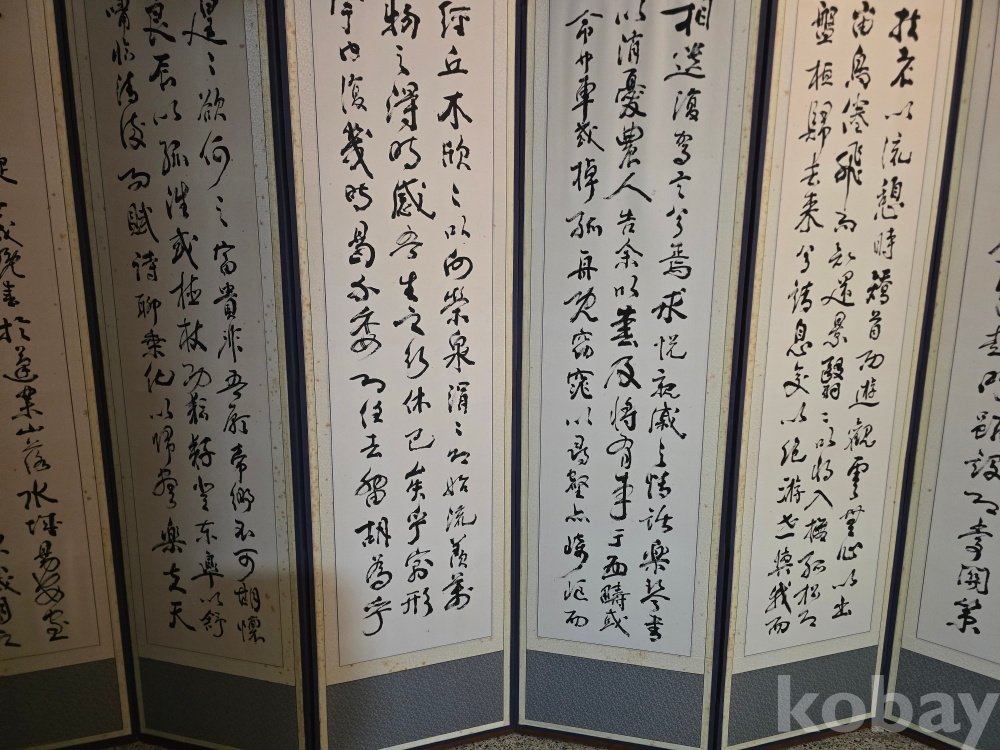 趣門雖設而常關策
扶老以流憩時矯首而遐觀雲無心以出
岫鳥倦飛而知還景翳〻以將入撫孤松而
盤桓歸去來兮請息交以絶游世與我而
相遺復駕言兮焉求悅親戚之情話樂琴書
以消憂農人告余以春及將有事于西疇或
命巾車或棹孤舟既窈窕以尋壑亦崎嶇而
經丘木欣〻以向榮泉涓〻而始流羨萬
物之得時感吾生之行休已矣乎寓形
宇內復幾時曷不委心任去留胡爲乎
遑〻欲何之富貴非吾願帝鄉不可期懷
良辰以孤往或植杖而耘耔登東皐以舒
嘯臨清流而賦詩聊乘化以歸盡樂夫天
晚春於蓬莱山落水
kobay